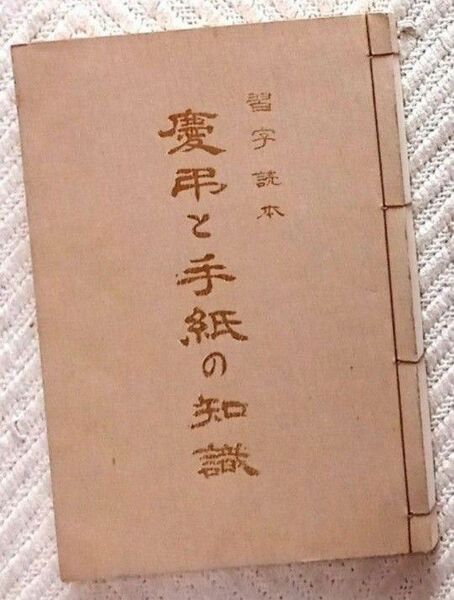 習字読本
慶弔と手紙の知識